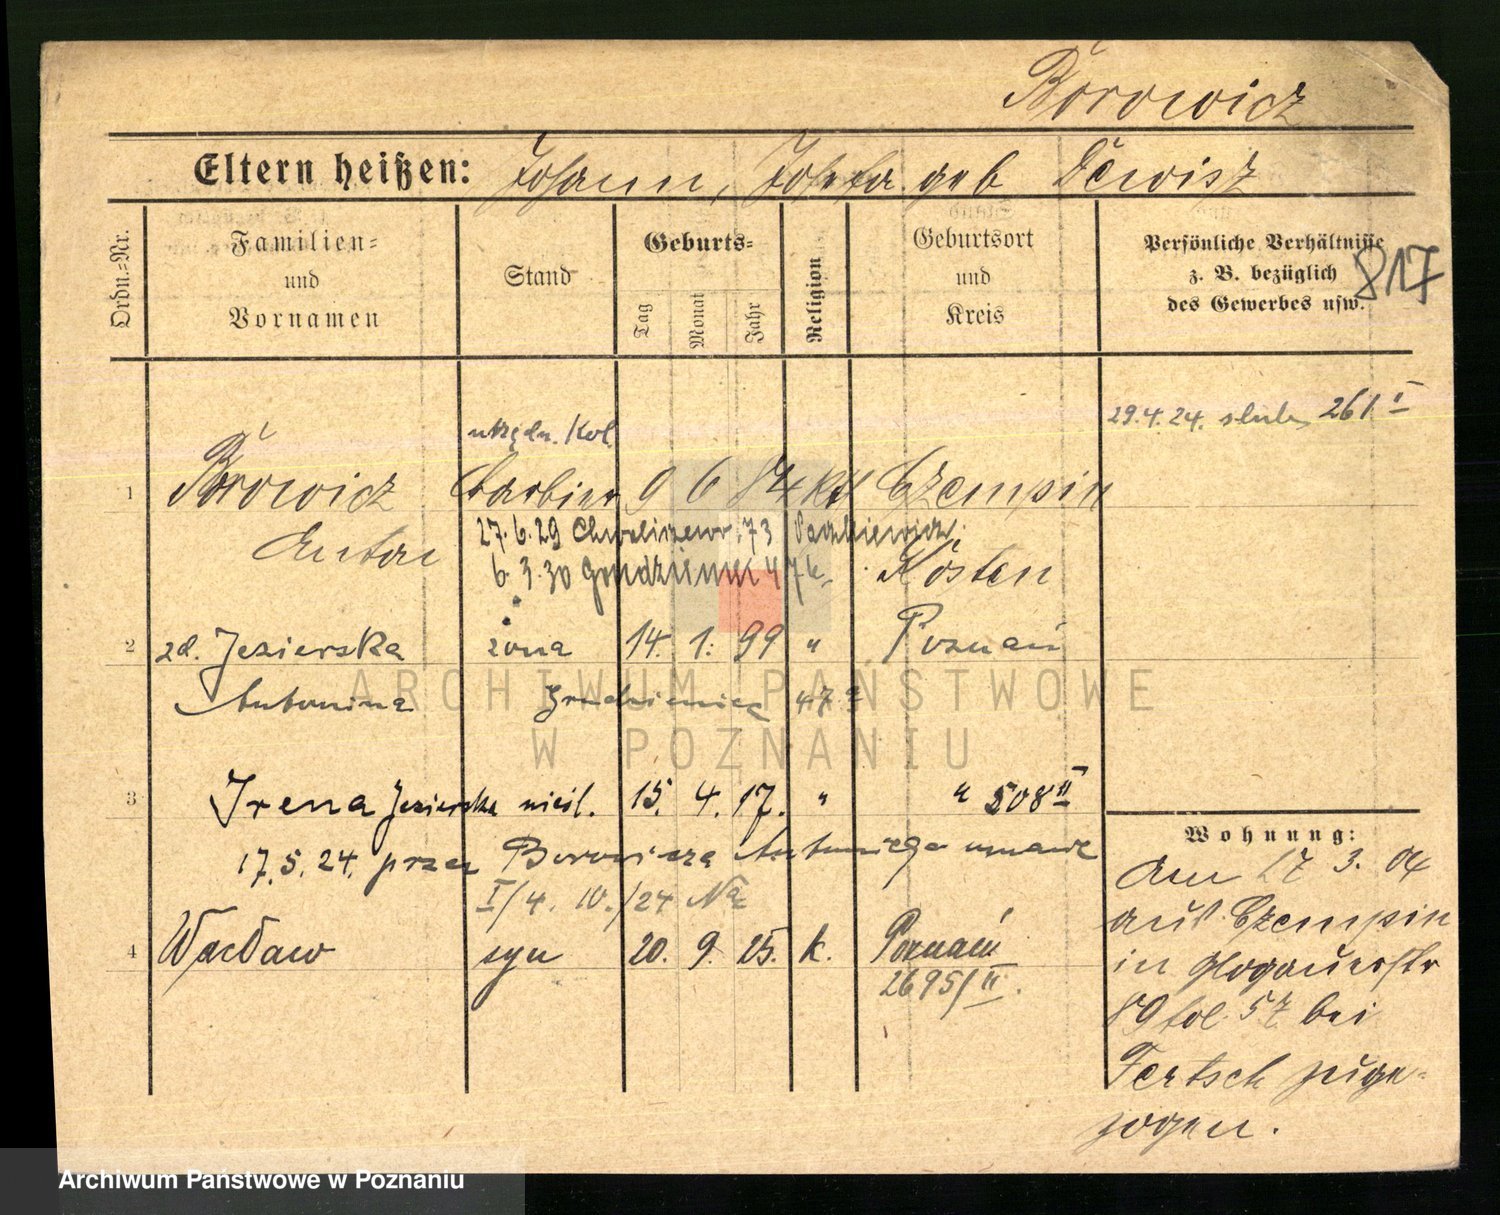 Borowicz
Eltern heißen: Johann, Josefa geb
Ordn.-Nr.
Familien=
und
Vornamen
Stand
Geburts=
Tag
Monat
Jahr
Religion
Geburtsort
und
Kreis
Persönliche Verhältnisse
z. B. bezüglich
des Gewerbes usw.
817
29.4.24. ślub 261 I
urzędn. Kol.
1 Borowicz Barbier 9 6 84 kth Czempin
Anton
27.6.29 Chwaliszewo 73
6.3.30 Grudzieniec 47
Kosten
2 zd. Jezierska żona 14. 1. 99 " Poznań
Antonina Grudzieniec 47
3 Irena Jezierska nieśl. 15. 4. 17. " " 508 II
17.5.24. przez Borowicza Antoniego uznane
I/4. 10./24
4 Wacław syn 20. 9. 25. k. Poznań
2695/II.
Wohnung:
Am 27 3. 04
aus Czempin
in Glogauerstr
89 bei
Fertsch zuge=
zogen.
ARCHIWUM PAŃSTWOWE
W POZNANIU
Archiwum Państwowe w Poznaniu